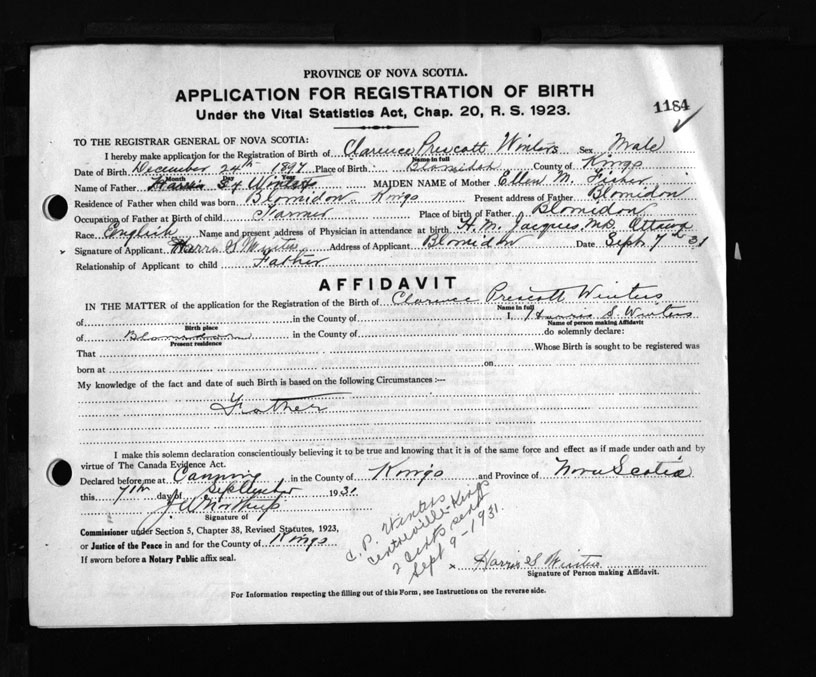 PROVINCE OF NOVA SCOTIA.
APPLICATION FOR REGISTRATION OF BIRTH
Under the Vital Statistics Act, Chap. 20, R. S. 1923.
1184
TO THE REGISTRAR GENERAL OF NOVA SCOTIA:
I hereby make application for the Registration of Birth of Clarence Prescott Winters Sex Male
Name in full
Date of Birth December 24th 1897 Place of Birth Blomidon County of Kings
Month Day Year
Name of Father Harris S Winters MAIDEN NAME of Mother Ellen M. Fisher
Residence of Father when child was born Blomidon Kings Present address of Father Blomidon
Occupation of Father at Birth of child Farmer Place of birth of Father Blomidon
Race English Name and present address of Physician in attendance at birth H. M. Jacques M.D. Ottawa
Signature of Applicant Harris S Winters Address of Applicant Blomidon Date Sept. 7th 31
Relationship of Applicant to child Father
AFFIDAVIT
IN THE MATTER of the application for the Registration of the Birth of Clarence Prescott Winters
Name in full
of in the County of I, Harris S. Winters
Birth place
Name of person making Affidavit
of Blomidon in the County of do solemnly declare:
Present residence
That Whose Birth is sought to be registered was
born at on
My knowledge of the fact and date of such Birth is based on the following Circumstances :—
Father
I make this solemn declaration conscientiously believing it to be true and knowing that it is of the same force and effect as if made under oath and by
virtue of The Canada Evidence Act.
Declared before me at Canning in the County of Kings and Province of Nova Scotia
this 7th day of September 1931
Signature of
Commissioner under Section 5, Chapter 38, Revised Statutes, 1923,
or Justice of the Peace in and for the County of Kings
If sworn before a Notary Public affix seal.
C. P. Winters
Centreville Kings
2 certs sent
Sept 9-1931.
x Harris S Winters
Signature of Person making Affidavit.
For Information respecting the filling out of this Form, see Instructions on the reverse side.